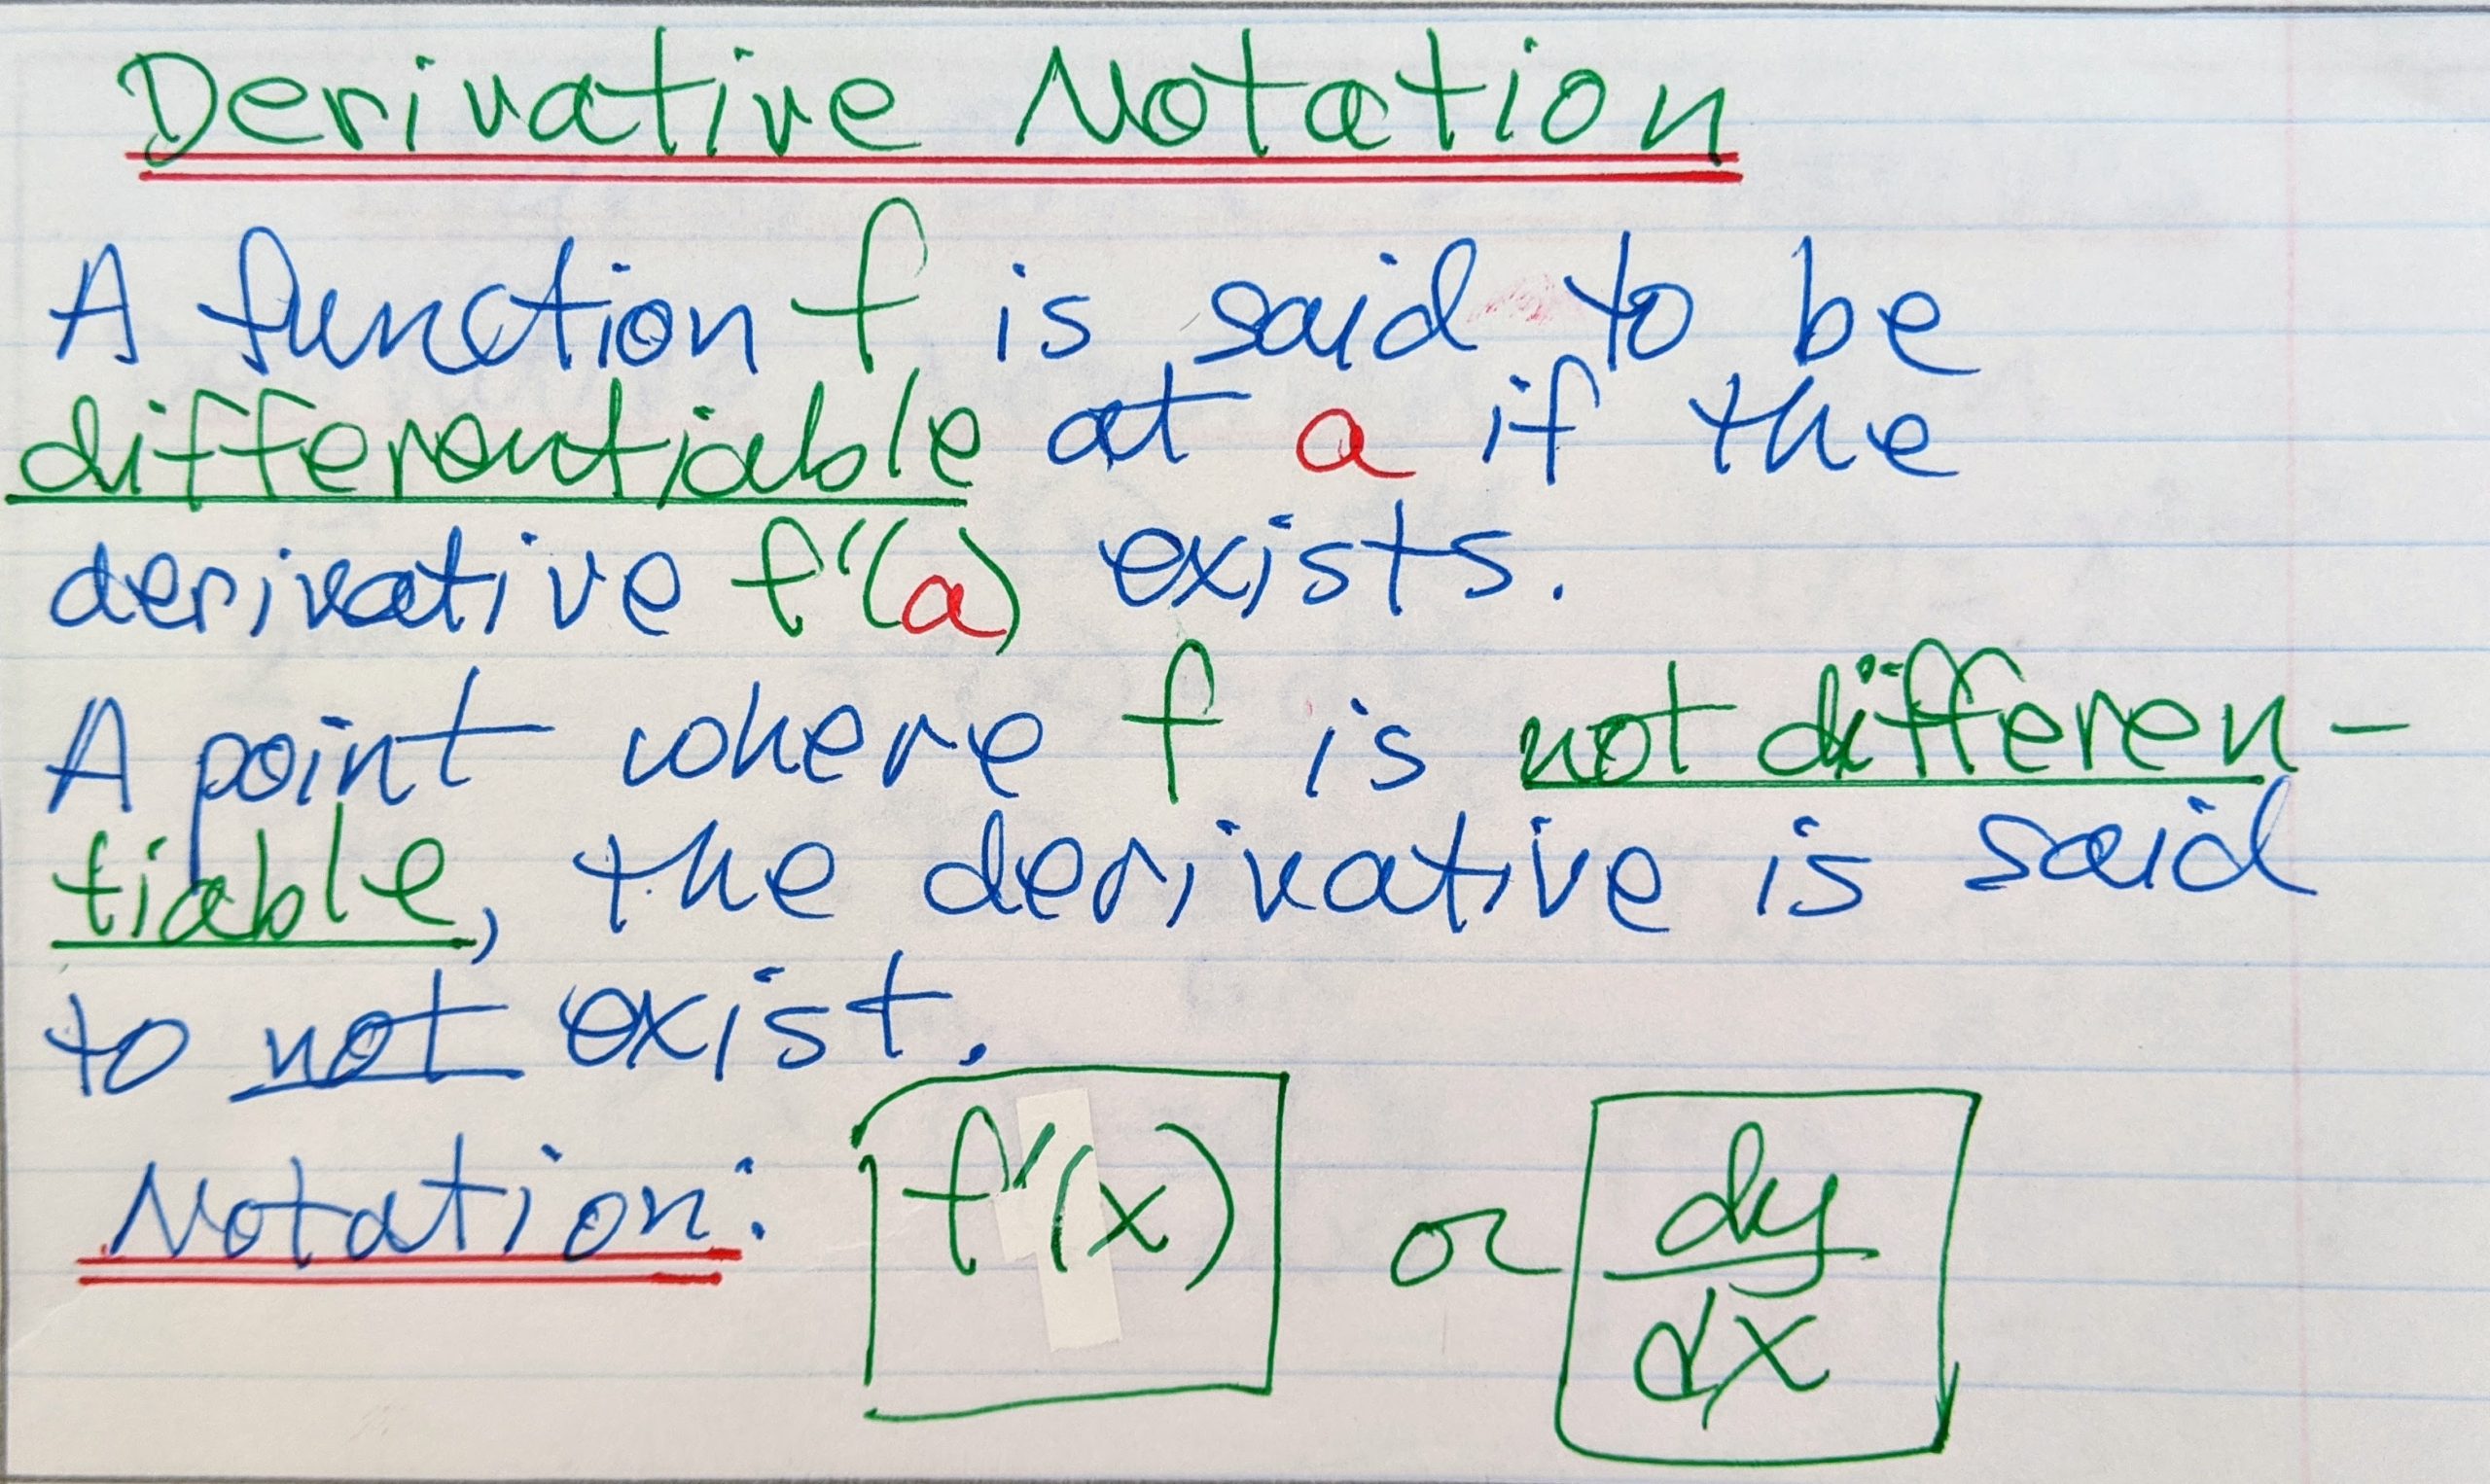 Derivative Notation
A function f is said to be
differentiable at a if the
derivative f'(a) exists.
A point where f is not differen-
tiable, the derivative is said
to not exist.
Notation: f'(x) or dy/dx